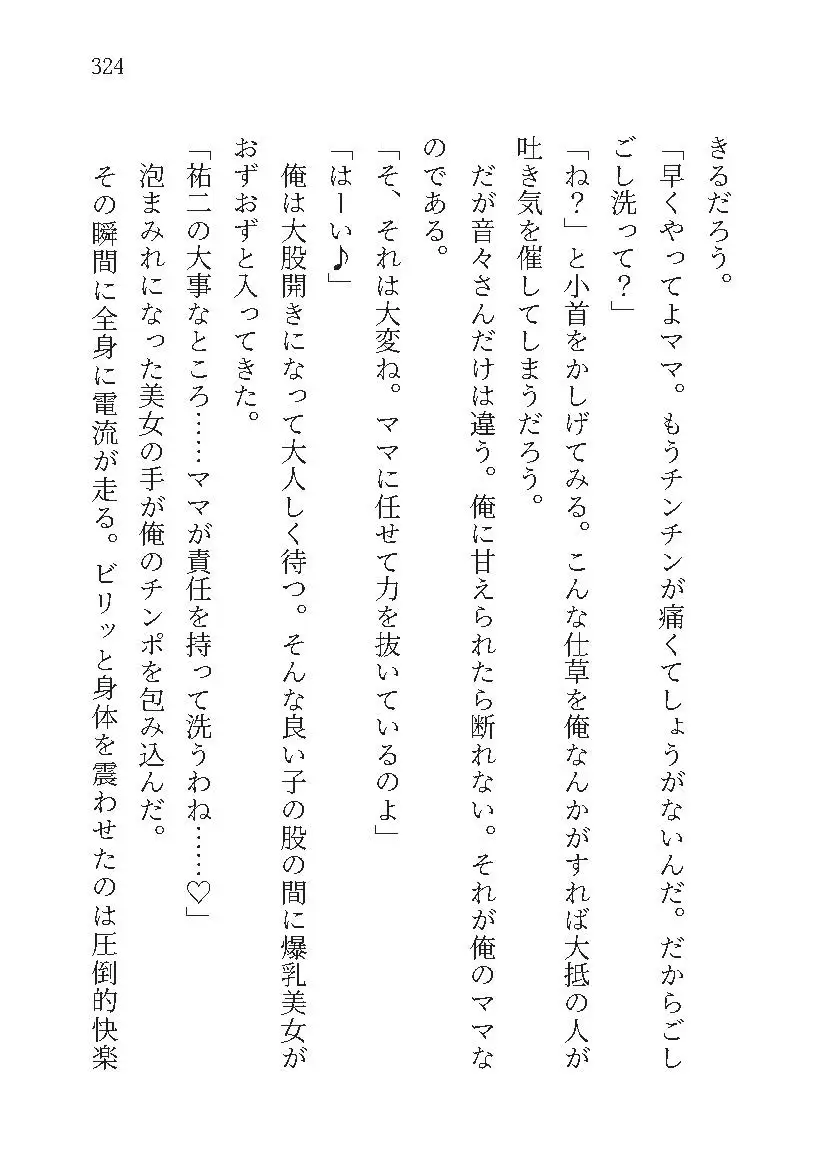 324
きるだろう。
「早くやってよママ。もうチンチンが痛くてしょうがないんだ。だからごし
ごし洗って？」
「ね？」と小首をかしげてみる。こんな仕草を俺なんかがすれば大抵の人が
吐き気を催してしまうだろう。
だが音々さんだけは違う。俺に甘えられたら断れない。それが俺のママな
のである。
「そ、それは大変ね。ママに任せて力を抜いているのよ」
「はーい♪」
俺は大股開きになって大人しく待つ。そんな良い子の股の間に爆乳美女が
おずおずと入ってきた。
「祐二の大事なところ……ママが責任を持って洗うわね……♡」
泡まみれになった美女の手が俺のチンポを包み込んだ。
その瞬間に全身に電流が走る。ビリッと身体を震わせたのは圧倒的快楽